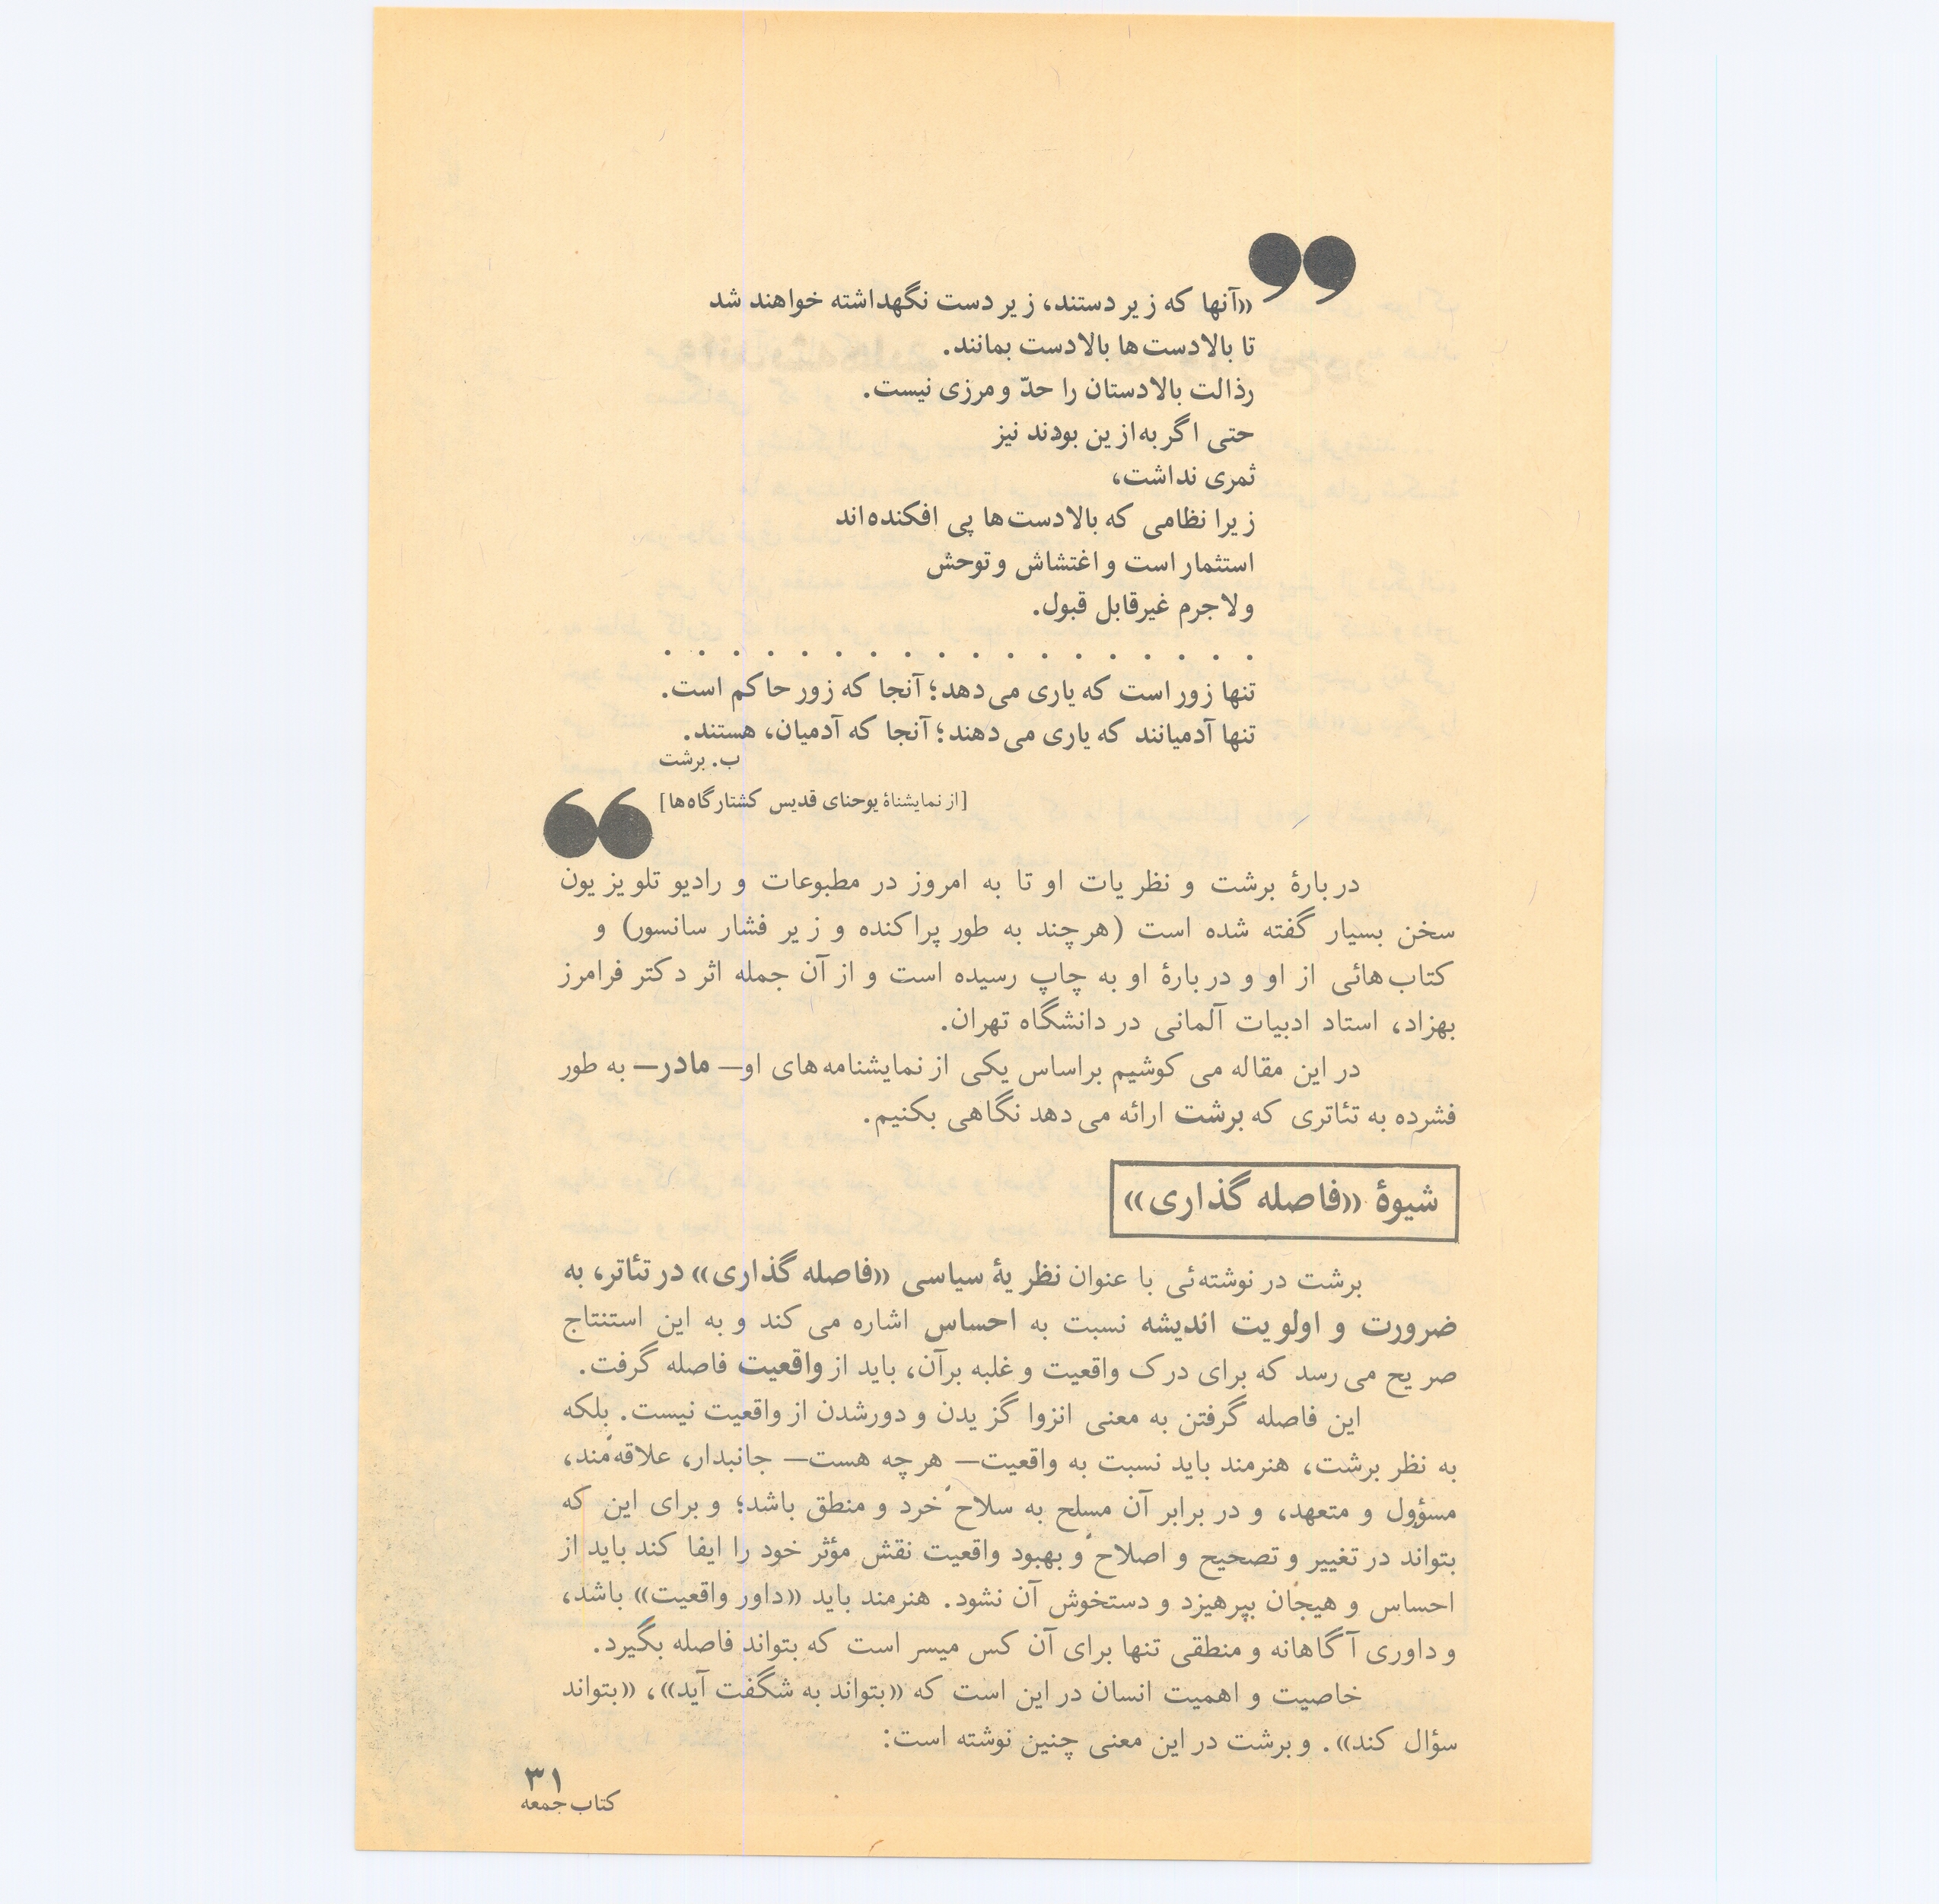 «آنها که زیر دستند، زیر دست نگهداشته خواهند شد
تا بالادست‌ها بالادست بمانند.
رذالت بالادستان را حدّ و مرزی نیست.
حتی اگر به‌ازین بودند نیز
ثمری نداشت،
زیرا نظامی که بالادست‌ها پی افکنده‌اند
استثمار است و اغتشاش و توحش
و لاجرم غیرقابل قبول.
. . . . . . . . . . . . . . . . . .
تنها زور است که یاری می‌دهد؛ آنجا که زور حاکم است.
تنها آدمیانند که یاری می‌دهند؛ آنجا که آدمیان، هستند.
ب. برشت
[از نمایشناهٔ یوحنای قدیس کشتارگاه‌ها]
دربارهٔ برشت و نظریات او تا به امروز در مطبوعات و رادیو تلویزیون
سخن بسیار گفته شده است (هرچند به طور پراکنده و زیر فشار سانسور) و
کتاب‌هائی از او و دربارهٔ او به چاپ رسیده است و از آن جمله اثر دکتر فرامرز
بهزاد، استاد ادبیات آلمانی در دانشگاه تهران.
در این مقاله می کوشیم براساس یکی از نمایشنامه‌های او— مادر— به طور
فشرده به تئاتری که برشت ارائه می‌دهد نگاهی بکنیم.
شیوهٔ «فاصله گذاری»
برشت در نوشته‌ئی با عنوان نظریهٔ سیاسی «فاصله گذاری» در تئاتر، به
ضرورت و اولویت اندیشه نسبت به احساس اشاره می کند و به این استنتاج
صریح می‌رسد که برای درک واقعیت و غلبه برآن، باید از واقعیت فاصله گرفت.
این فاصله گرفتن به معنی انزوا گزیدن و دورشدن از واقعیت نیست. بلکه
به نظر برشت، هنرمند باید نسبت به واقعیت— هرچه هست— جانبدار، علاقه‌مند،
مسؤول و متعهد، و در برابر آن مسلح به سلاح خرد و منطق باشد؛ و برای این که
بتواند در تغییر و تصحیح و اصلاح و بهبود واقعیت نقش مؤثر خود را ایفا کند باید از
احساس و هیجان بپرهیزد و دستخوش آن نشود. هنرمند باید «داور واقعیت» باشد،
و داوری آگاهانه و منطقی تنها برای آن کس میسر است که بتواند فاصله بگیرد.
خاصیت و اهمیت انسان در این است که «بتواند به شگفت آید»، «بتواند
سؤال کند». و برشت در این معنی چنین نوشته است:
۳۱
کتاب جمعه